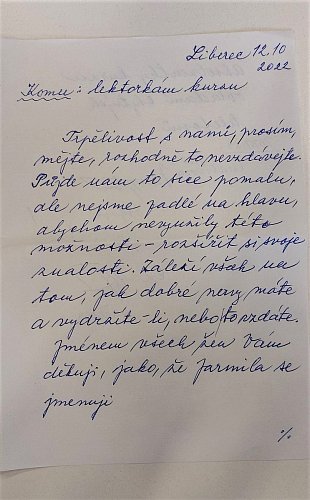 Liberec 12.10
2022
Komu: lektorkám kurzu
Trpělivost s námi, prosím,
mějte, rozhodně to nevzdávejte.
Půjde nám to sice pomalu,
ale nejsme padlé na hlavu,
abychom nevyužily této
možnosti – rozšířit si svoje
znalosti. Záleží však na
tom, jak dobré nervy máte
a vydržíte-li, nebo to vzdáte.
Jménem všech žen Vám
děkuji, jako, že Jarmila se
jmenuji
%